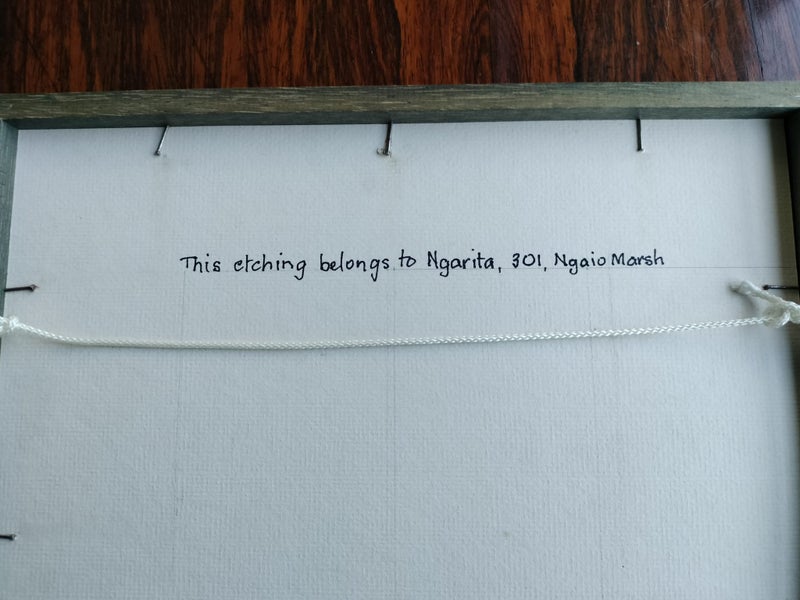 This etching belongs to Ngarita, 301, Ngaio Marsh